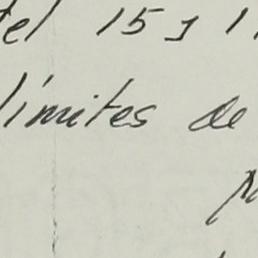 del 15 y 1
límites de